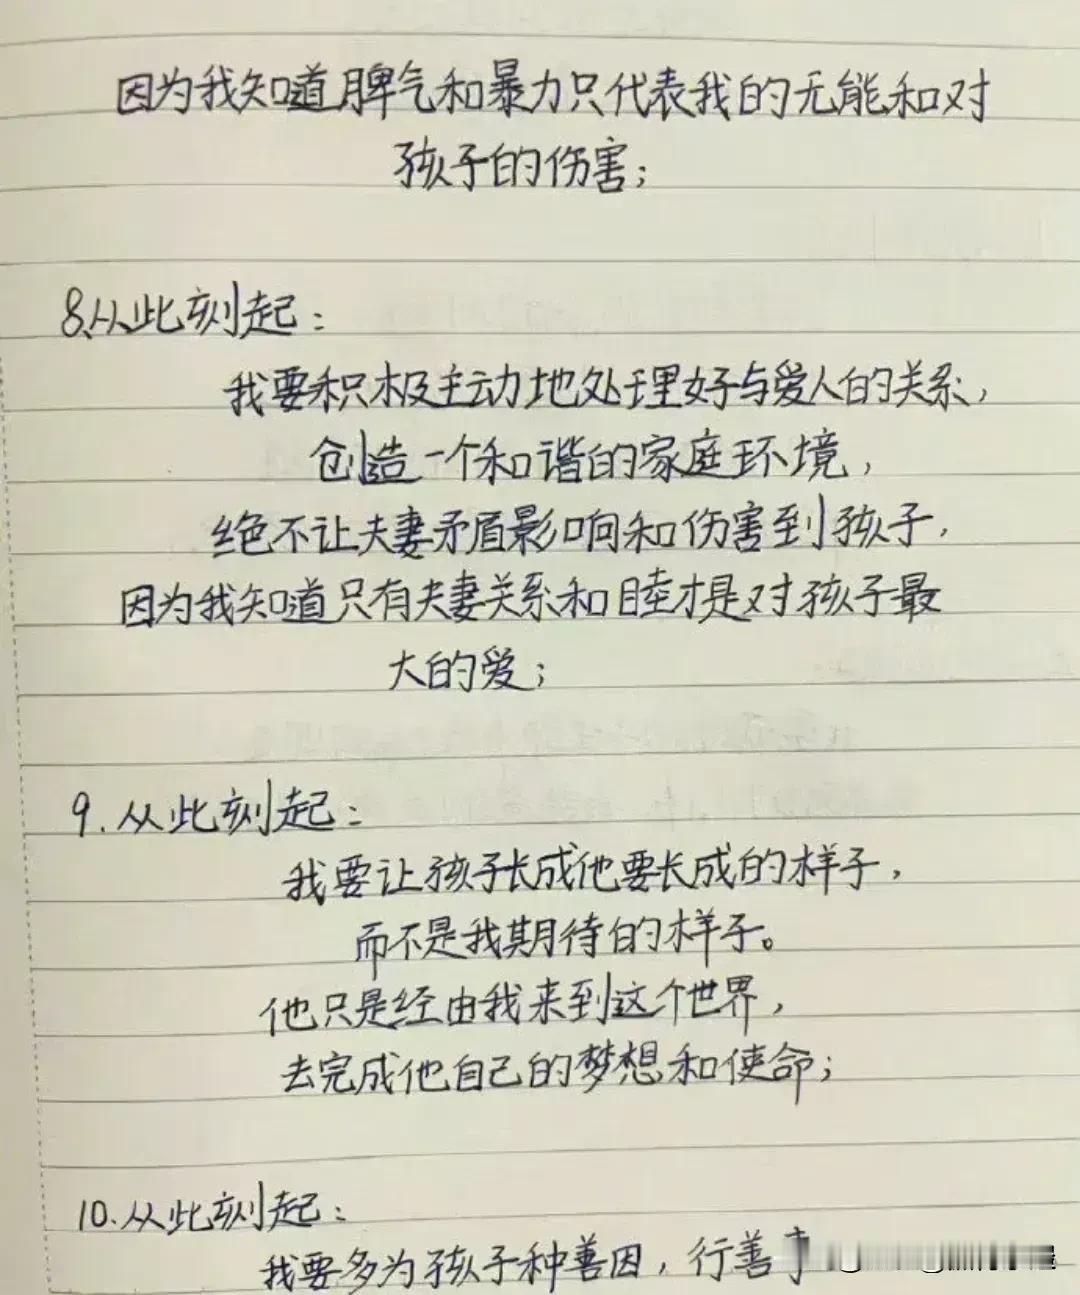 因为我知道脾气和暴力只代表我的无能和对
孩子的伤害；
8.从此刻起：
我要积极主动地处理好与爱人的关系，
创造一个和谐的家庭环境，
绝不让夫妻矛盾影响和伤害到孩子，
因为我知道只有夫妻关系和睦才是对孩子最
大的爱；
9.从此刻起：
我要让孩子长成他要长成的样子，
而不是我期待的样子。
他只是经由我来到这个世界，
去完成他自己的梦想和使命；
10.从此刻起：
我要多为孩子种善因，行善